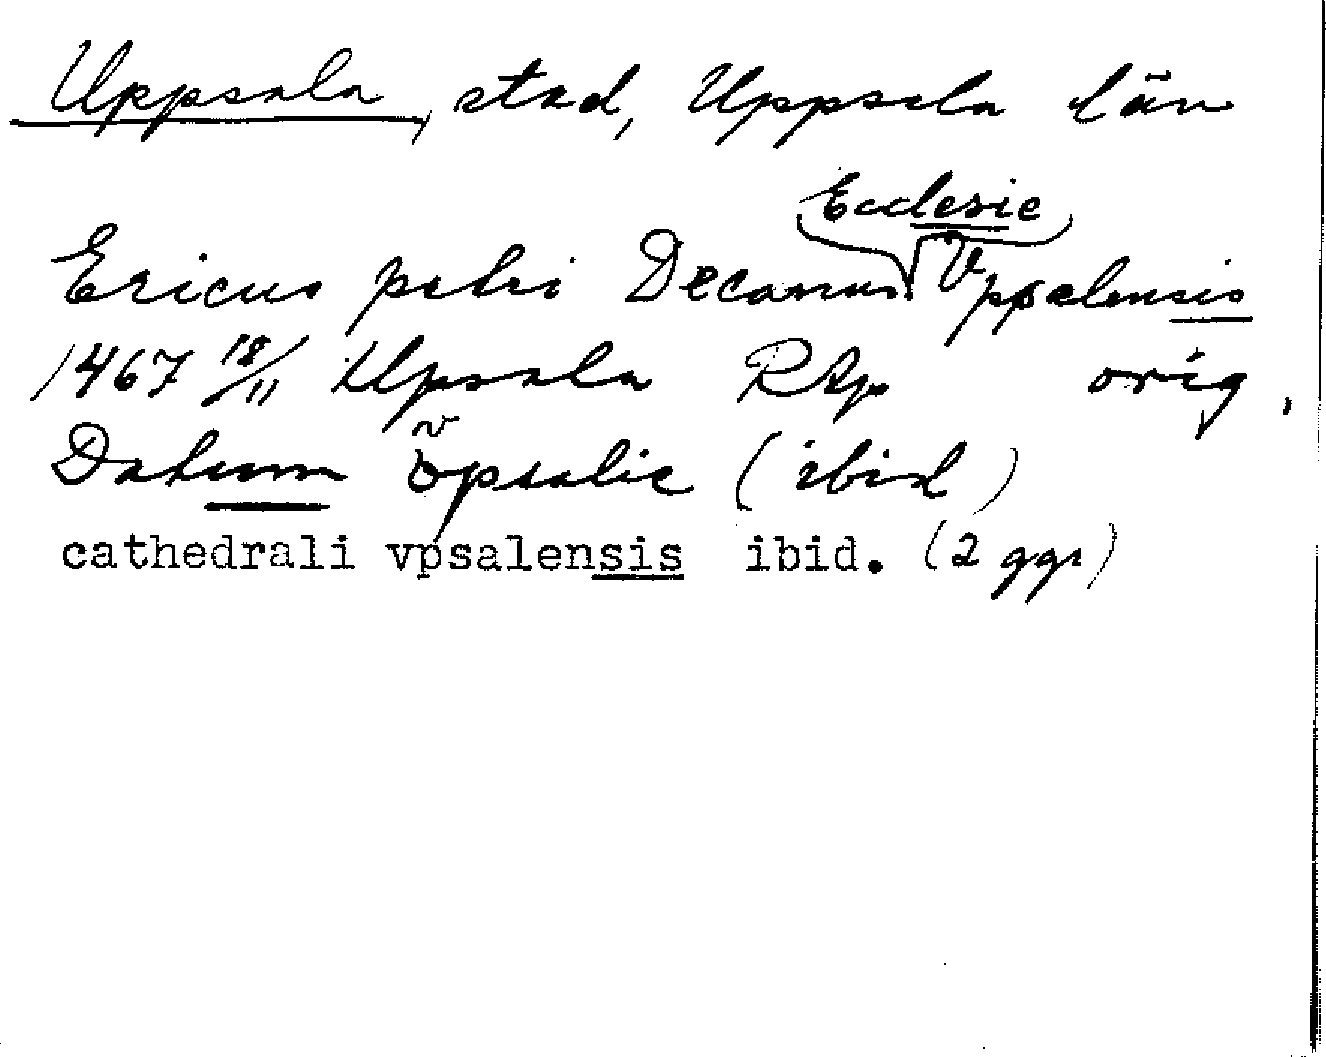 Uppsala, stad, Uppsala län
Ecclesie
Ericus petri Decanus Vppsalensis
1467 18/11 Upsala RAp orig.
Datum vpsalie (ibid)
cathedrali vpsalensis ibid. (2 ggr)